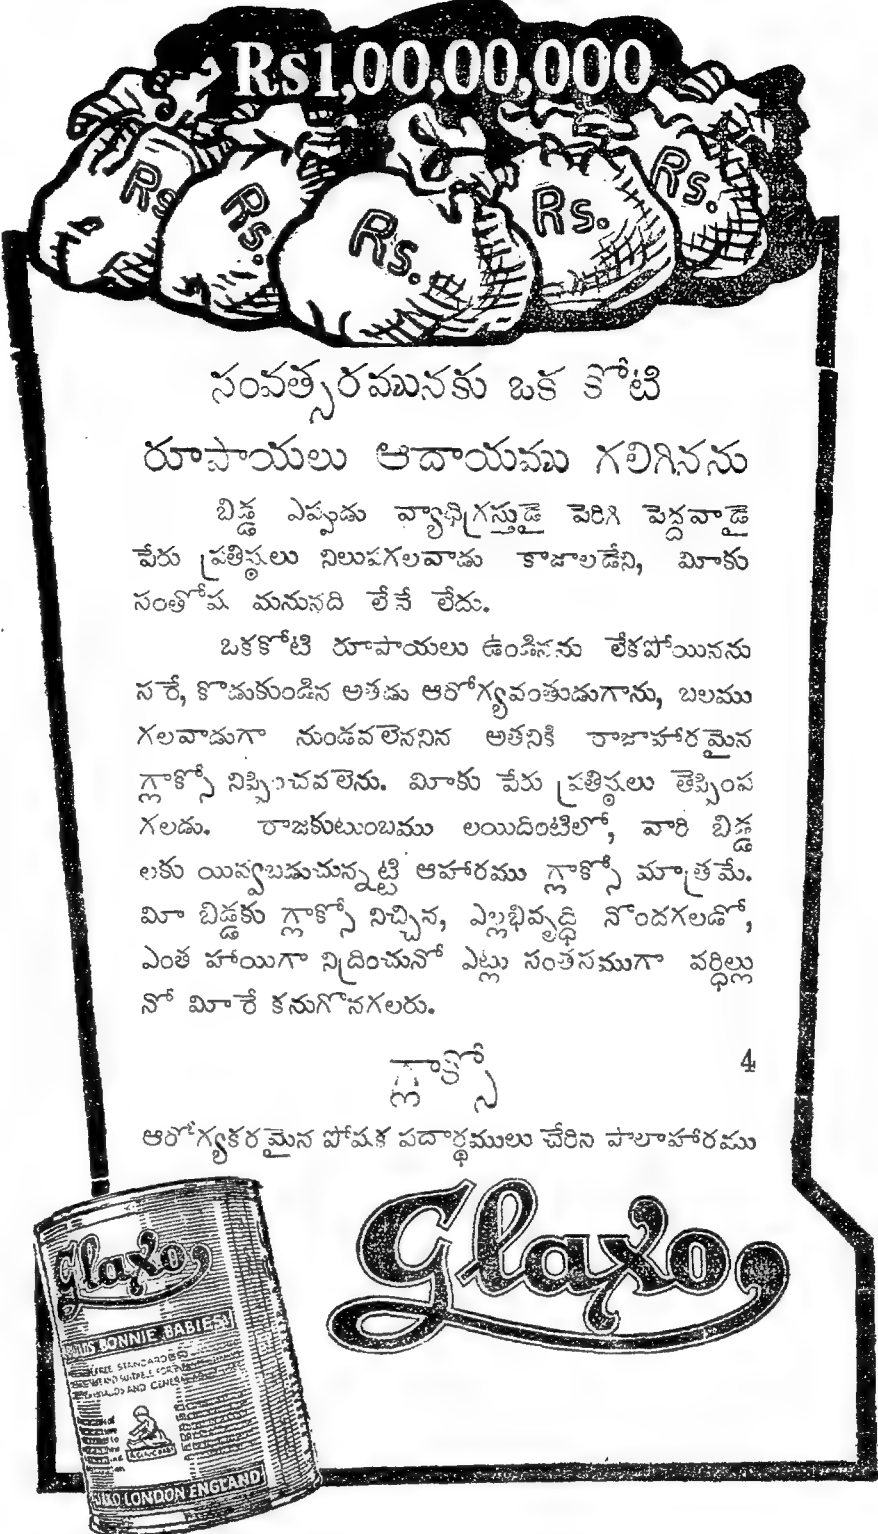 Rs1,00,00,000
Rs Rs. Rs. Rs. Rs.
సంవత్సరమునకు ఒక కోటి
రూపాయలు ఆదాయము గలిగినను
బిడ్డ ఎప్పుడు వ్యాధిగ్రస్తుడై పెరిగి పెద్దవాడై
పేరు ప్రతిష్ఠలు నిలుపగలవాడు కాజాలడేని, మీకు
సంతోష మనునది లేనే లేదు.
ఒకకోటి రూపాయలు ఉండినను లేకపోయినను
సరే, కొడుకుండిన అతడు ఆరోగ్యవంతుడుగాను, బలము
గలవాడుగా నుండవలెననిన అతనికి రాజాహారమైన
గ్లాక్సో నిప్పించవలెను. మీకు పేరు ప్రతిష్ఠలు తెప్పింప
గలడు. రాజకుటుంబము లయిదింటిలో, వారి బిడ్డ
లకు యివ్వబడుచున్నట్టి ఆహారము గ్లాక్సో మాత్రమే.
మీ బిడ్డకు గ్లాక్సో నిచ్చిన, ఎల్లభివృద్ధి నొందగలడో,
ఎంత హాయిగా నిద్రించునో ఎట్లు సంతసముగా వర్ధిల్లు
నో మీరే కనుగొనగలరు.
గ్లాక్సో 4
ఆరోగ్యకరమైన పోషక పదార్థములు చేరిన పాలాహారము
Glaxo
Glaxo
BONNIE BABIES
GLAXO LONDON ENGLAND